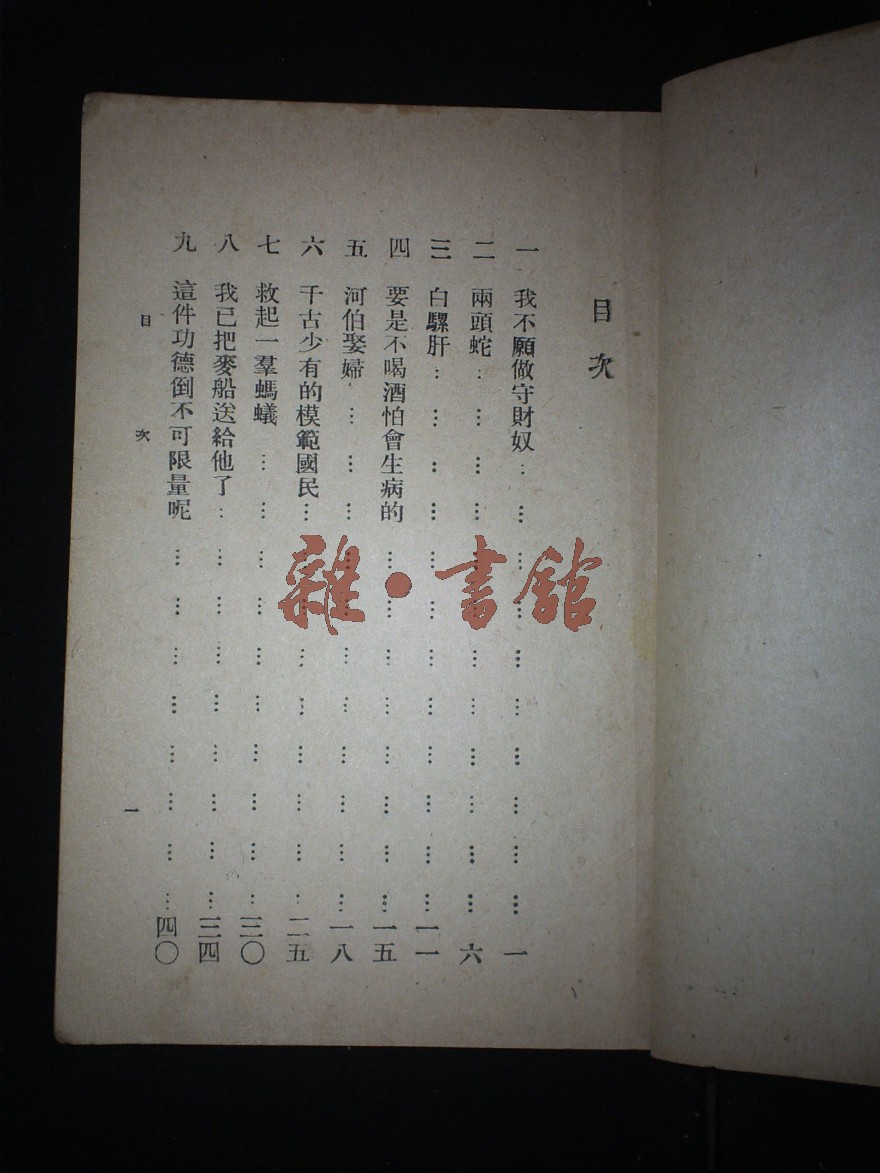 目次
一 我不願做守財奴……一
二 兩頭蛇……六
三 白騾肝……一一
四 要是不喝酒怕會生病的……一五
五 河伯娶婦……一八
六 千古少有的模範國民……二五
七 救起一羣螞蟻……三〇
八 我已把麥船送給他了……三四
九 這件功德倒不可限量呢……四〇
目次 一
雜·書館